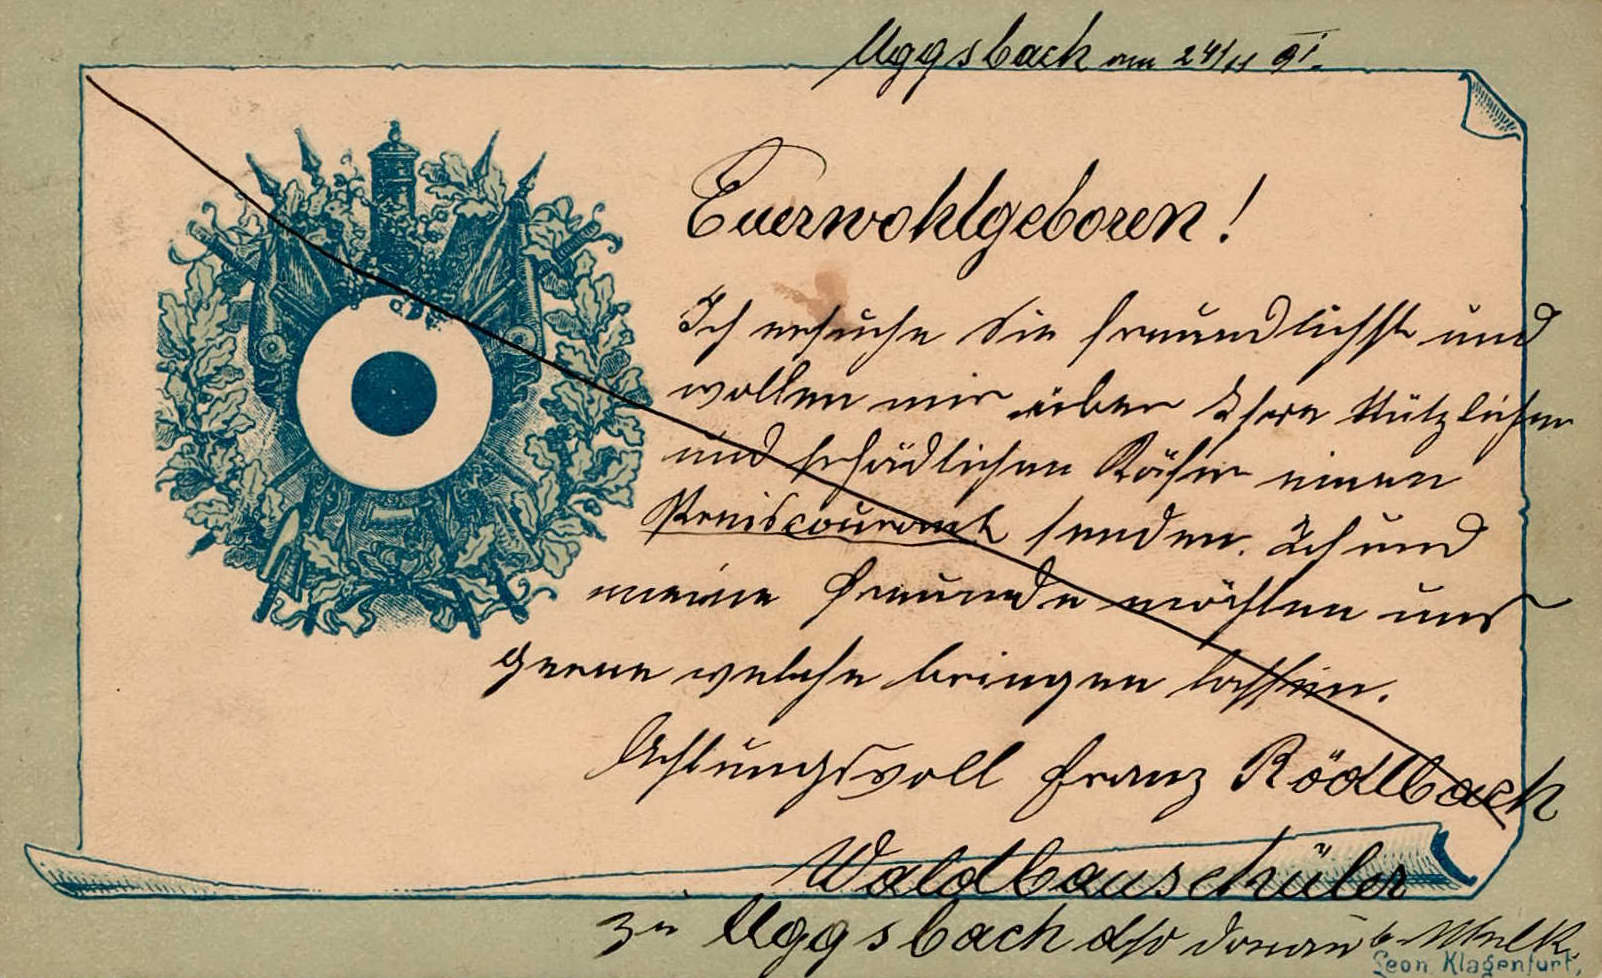 Aggsbach am 24/11 91.
Euerwohlgeboren!
Ich ersuche Sie freundlichst und
wollen mir über Ihere Nützlichen
und schädlichen Käfer einen
Preiscourant senden. Ich und
meine Freunde möchten uns
gerne welche bringen lassen.
Achtungsvoll Franz Rödlbach
Waldbauschüler
zu Aggsbach a/d Donau b. Melk.
Leon Klagenfurt.